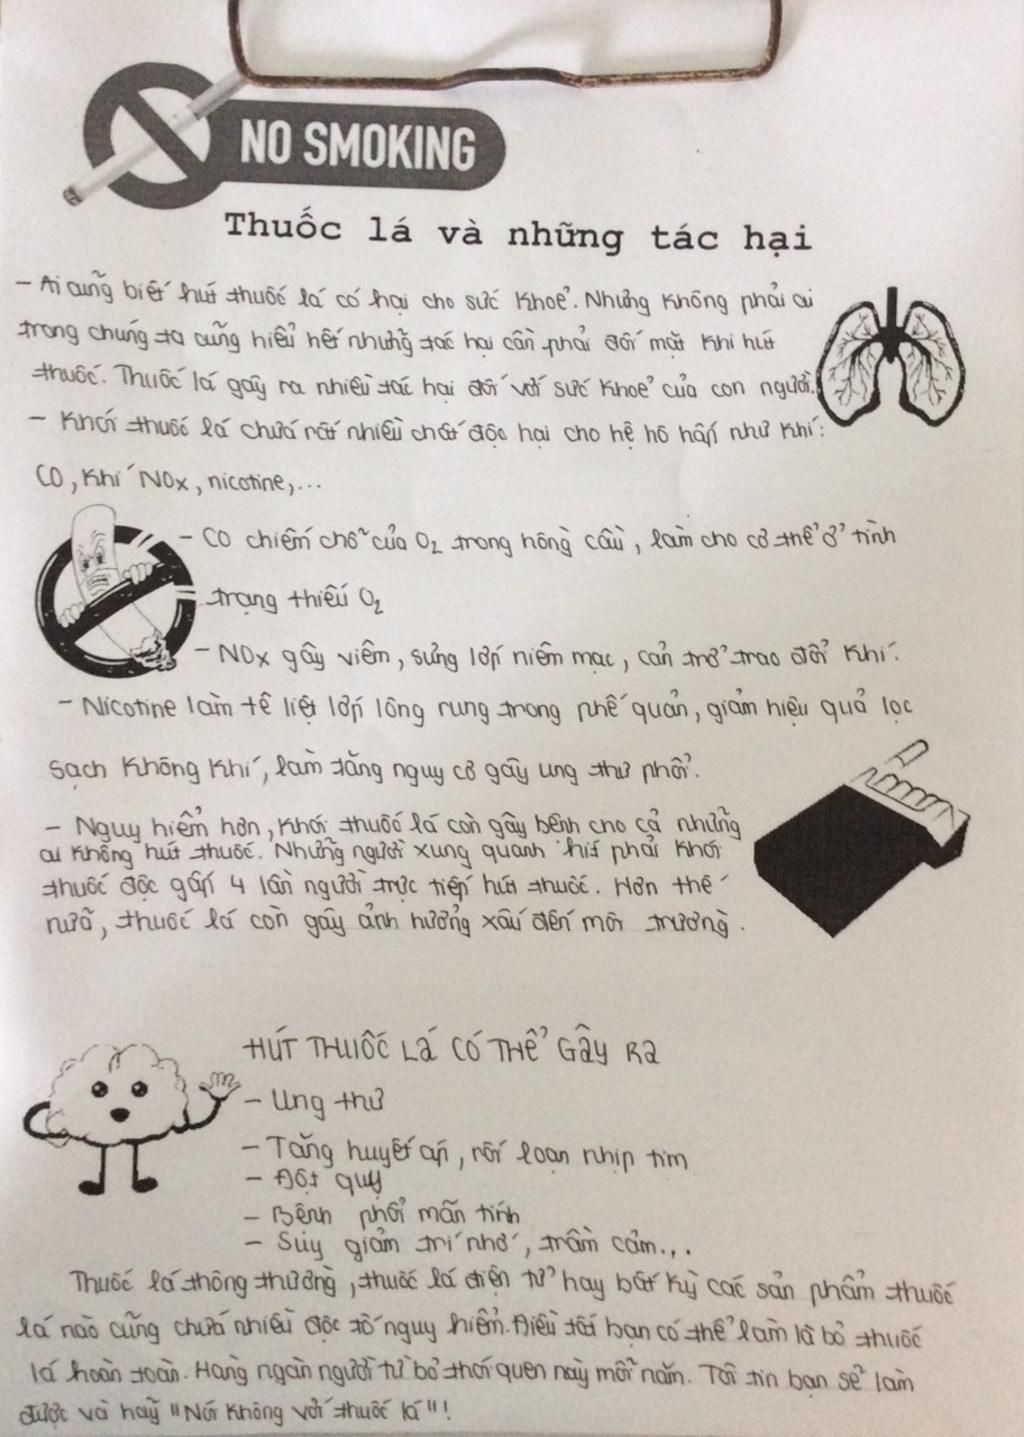 NO SMOKING
Thuốc lá và những tác hại
- Ai cũng biết hút thuốc lá có hại cho sức khoẻ. Nhưng không phải ai
trong chúng ta cũng hiểu hết những tác hại cần phải đối mặt khi hút
thuốc. Thuốc lá gây ra nhiều tác hại đối với sức khoẻ của con người.
- Khói thuốc lá chứa rất nhiều chất độc hại cho hệ hô hấp như khí:
CO, khí NOx, nicotine,...
- CO chiếm chỗ của O₂ trong hồng cầu, làm cho cơ thể ở tình
trạng thiếu O₂
- NOx gây viêm, sưng lớp niêm mạc, cản trở trao đổi khí.
- Nicotine làm tê liệt lớp lông rung trong phế quản, giảm hiệu quả lọc
sạch không khí, làm tăng nguy cơ gây ung thư phổi.
- Nguy hiểm hơn, khói thuốc lá còn gây bệnh cho cả những
ai không hút thuốc. Những người xung quanh hít phải khói
thuốc độc gấp 4 lần người trực tiếp hút thuốc. Hơn thế
nữa, thuốc lá còn gây ảnh hưởng xấu đến môi trường.
HÚT THUỐC LÁ CÓ THỂ GÂY RA
- Ung thư
- Tăng huyết áp, rối loạn nhịp tim
- Đột quỵ
- Bệnh phổi mãn tính
- Suy giảm trí nhớ, trầm cảm...
Thuốc lá thông thường, thuốc lá điện tử hay bất kỳ các sản phẩm thuốc
lá nào cũng chứa nhiều độc tố nguy hiểm. Điều tốt bạn có thể làm là bỏ thuốc
lá hoàn toàn. Hàng ngàn người từ bỏ thói quen này mỗi năm. Tôi tin bạn sẽ làm
được và hãy "Nói không với thuốc lá"!